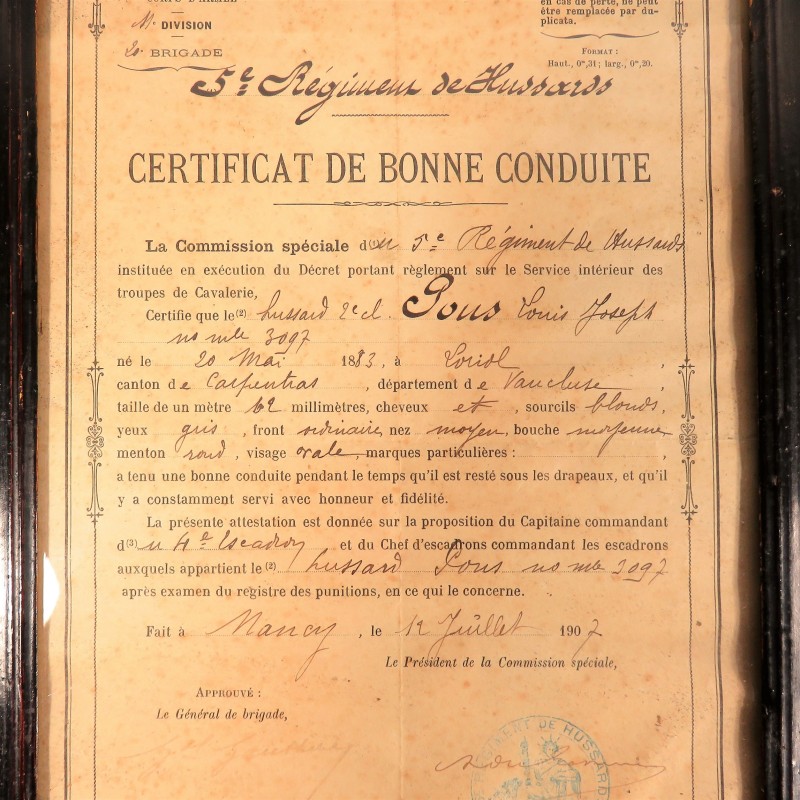 CORPS D'ARMÉE
DIVISION
20e BRIGADE
en cas de perte, ne peut
être remplacée par du-
plicata.
FORMAT :
Haut., 0m,31 ; larg., 0m,20.
5e Régiment de Hussards
CERTIFICAT DE BONNE CONDUITE
La Commission spéciale d(1)u 5e Régiment de Hussards
instituée en exécution du Décret portant règlement sur le Service intérieur des
troupes de Cavalerie,
Certifie que le (2) hussard 2e cl. Pous Louis Joseph
no mle 3097
né le 20 Mai 1883, à Loriol,
canton de Carpentras, département de Vaucluse,
taille de un mètre 62 millimètres, cheveux et, sourcils blonds,
yeux gris, front ordinaire, nez moyen, bouche moyenne
menton rond, visage ovale, marques particulières : ,
a tenu une bonne conduite pendant le temps qu'il est resté sous les drapeaux, et qu'il
y a constamment servi avec honneur et fidélité.
La présente attestation est donnée sur la proposition du Capitaine commandant
d(3)u 4e Escadron et du Chef d'escadrons commandant les escadrons
auxquels appartient le (2) hussard Pous no mle 3097
après examen du registre des punitions, en ce qui le concerne.
Fait à Nancy, le 12 Juillet 1907
Le Président de la Commission spéciale,
APPROUVÉ :
Le Général de brigade,
RÉGIMENT DE HUSSARDS